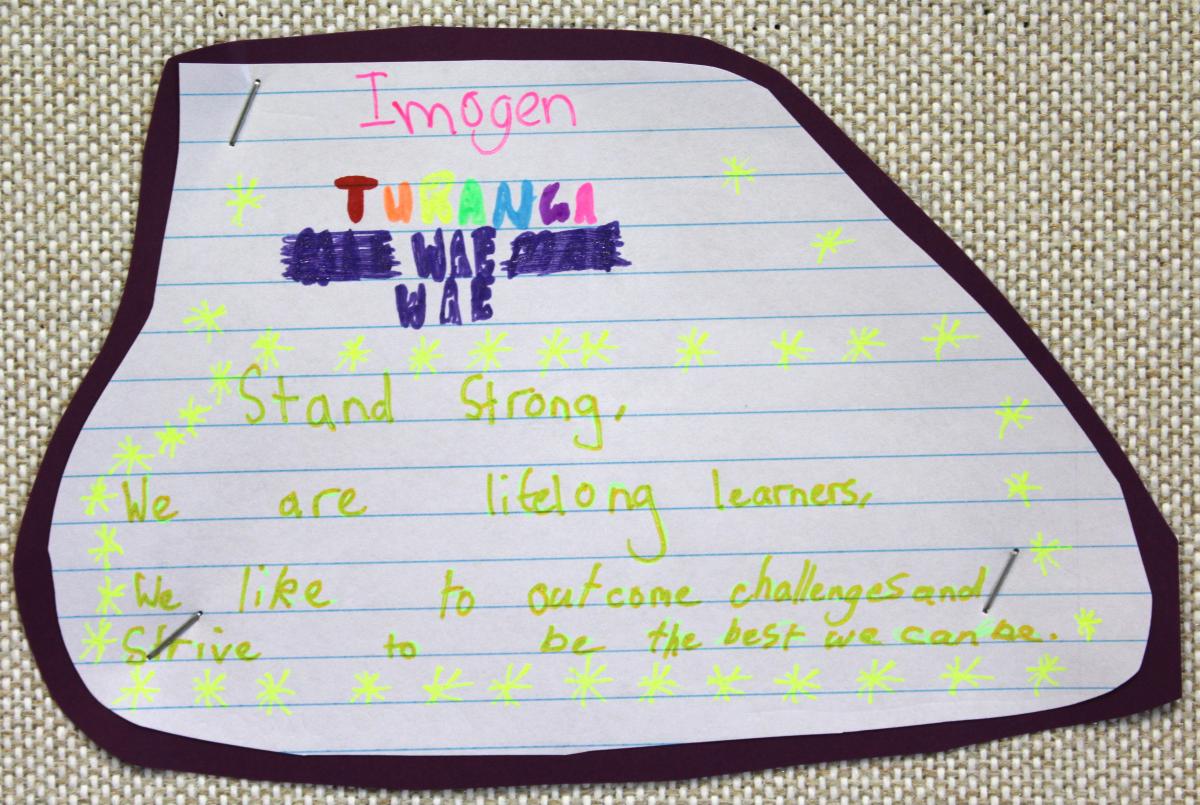 Imogen
TURANGA
WAE
WAE
Stand Strong,
We are lifelong learners,
We like to outcome challenges and
Strive to be the best we can be.